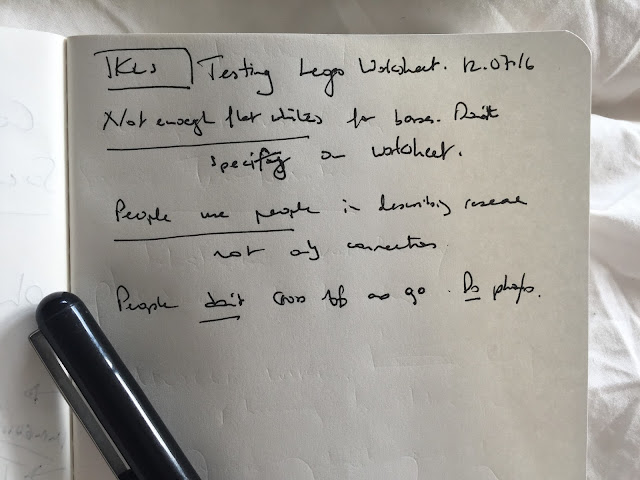 IKLS Testing Lego Worksheet. 12.07.16
Not enough flat whites for bases. Don't
specifying on worksheet.
People use people in describing research
not only connections.
People don't cross off as go. Do photos.